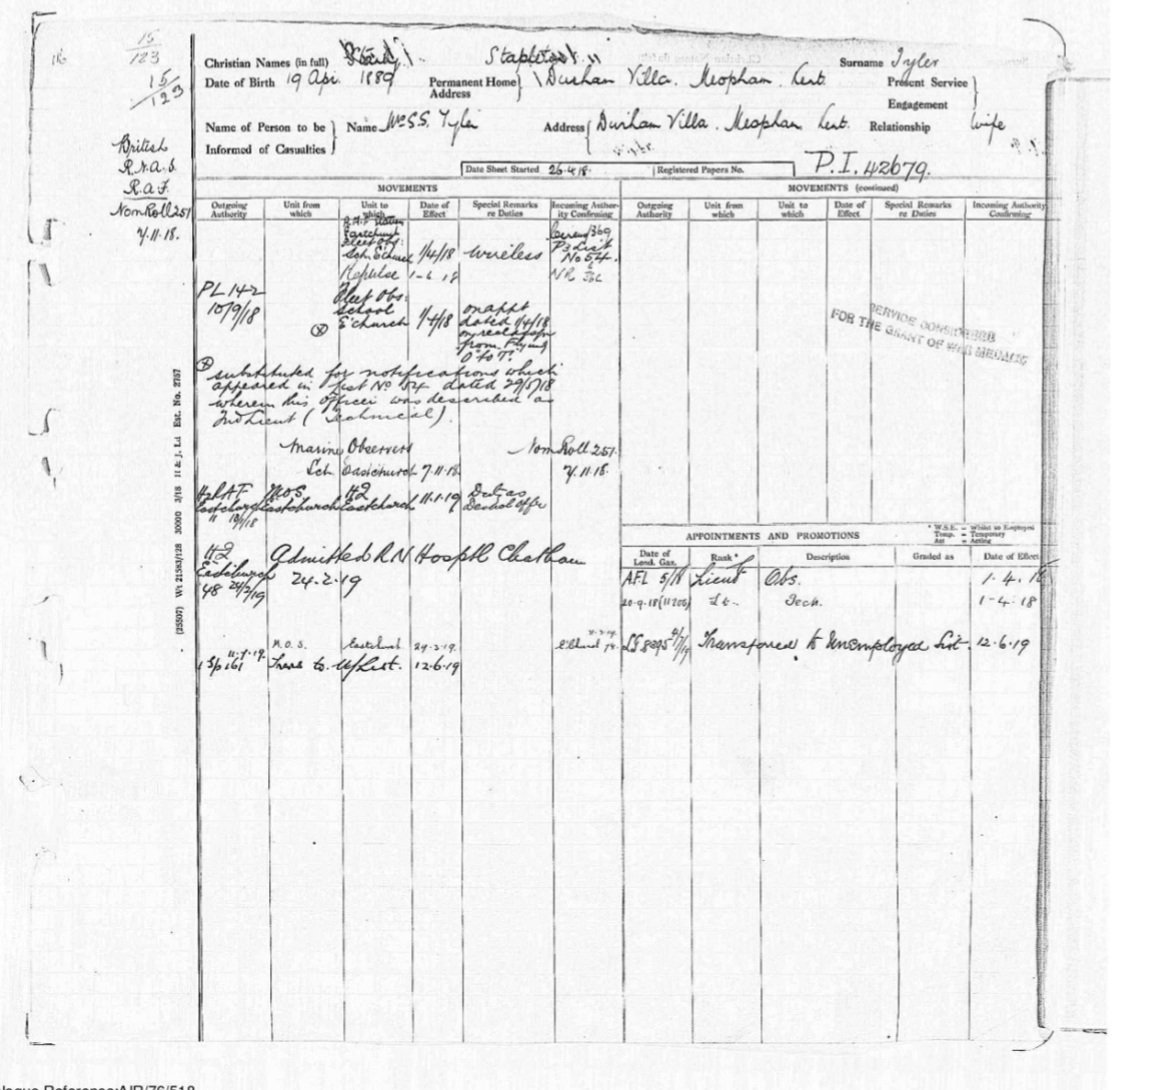 15/123
15/123
British
R.N.A.S.
R.A.F.
Nom Roll 251
7.11.18.
Christian Names (in full) Stapleton
Surname Tyler
Date of Birth 19 Apr. 1889
Permanent Home Address } Durham Villa. Meopham. Kent.
Present Service Engagement }
Name of Person to be Informed of Casualties } Name Mrs S. Tyler
Address { Durham Villa. Meopham Kent. Relationship wife
Date Sheet Started 26.4.18.
Registered Papers No. P.I. 42679.
MOVEMENTS
MOVEMENTS (continued)
Outgoing Authority Unit from which Unit to which Date of Effect Special Remarks re Duties Incoming Authority Confirming
Outgoing Authority Unit from which Unit to which Date of Effect Special Remarks re Duties Incoming Authority Confirming
Eastchurch
Fleet Obs:
Sch. E'church 1/4/18 wireless P3 List No 54.
Repulse 1-6 18 NR
PL 142
10/9/18
Fleet Obs:
School
E'church 1/4/18 on appt
dated 1/4/18
from Flying
O to T.
SERVICE CONSIDERED
FOR THE GRANT OF WAR MEDALS
substituted for notifications which
appeared in list No 54 dated 29/5/18
wherein this officer was described as
2nd Lieut (Technical).
Marine Observers
Sch Eastchurch 7.11.18. Nom Roll 251.
7.11.18.
H2 RAF MOS H2
Eastchurch Eastchurch Eastchurch 11.1.19
H2 Admitted RN Hosptl Chatham
Eastchurch 24.2.19
48 24/2/19
M.O.S. Eastchurch
11.7.19.
Trans to U/List. 12.6.19
APPOINTMENTS AND PROMOTIONS
* W.S.E. = Whilst so Employed
Temp. = Temporary
Act = Acting
Date of Lond. Gaz. Rank * Description Graded as Date of Effect
AFL 5/18 Lieut Obs. 1.4.18
20-9-18 (11206) Lt. Tech. 1-4-18
LG 8395 Transferred to Unemployed List. 12.6.19
(25507) Wt 21583/128 30000 3/18 H & J, Ld Est. No. 2787
Reference:AIR/76/518